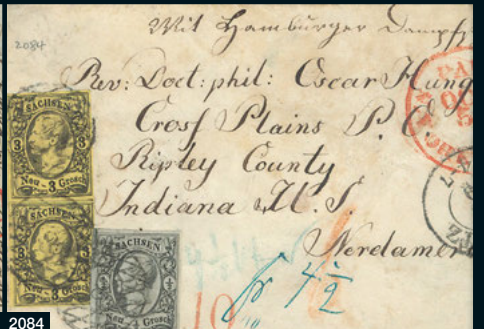 2084
Mit Hamburger Dampf
Rev: Doct: phil: Oscar Hung
Cross Plains P. O.
Ripley County
Indiana U. S.
Nordamer
SACHSEN
3 3
Neu - 3 Grosch
SACHSEN
3 3
Neu - 3 Grosch
SACHSEN
4 1/2
2084